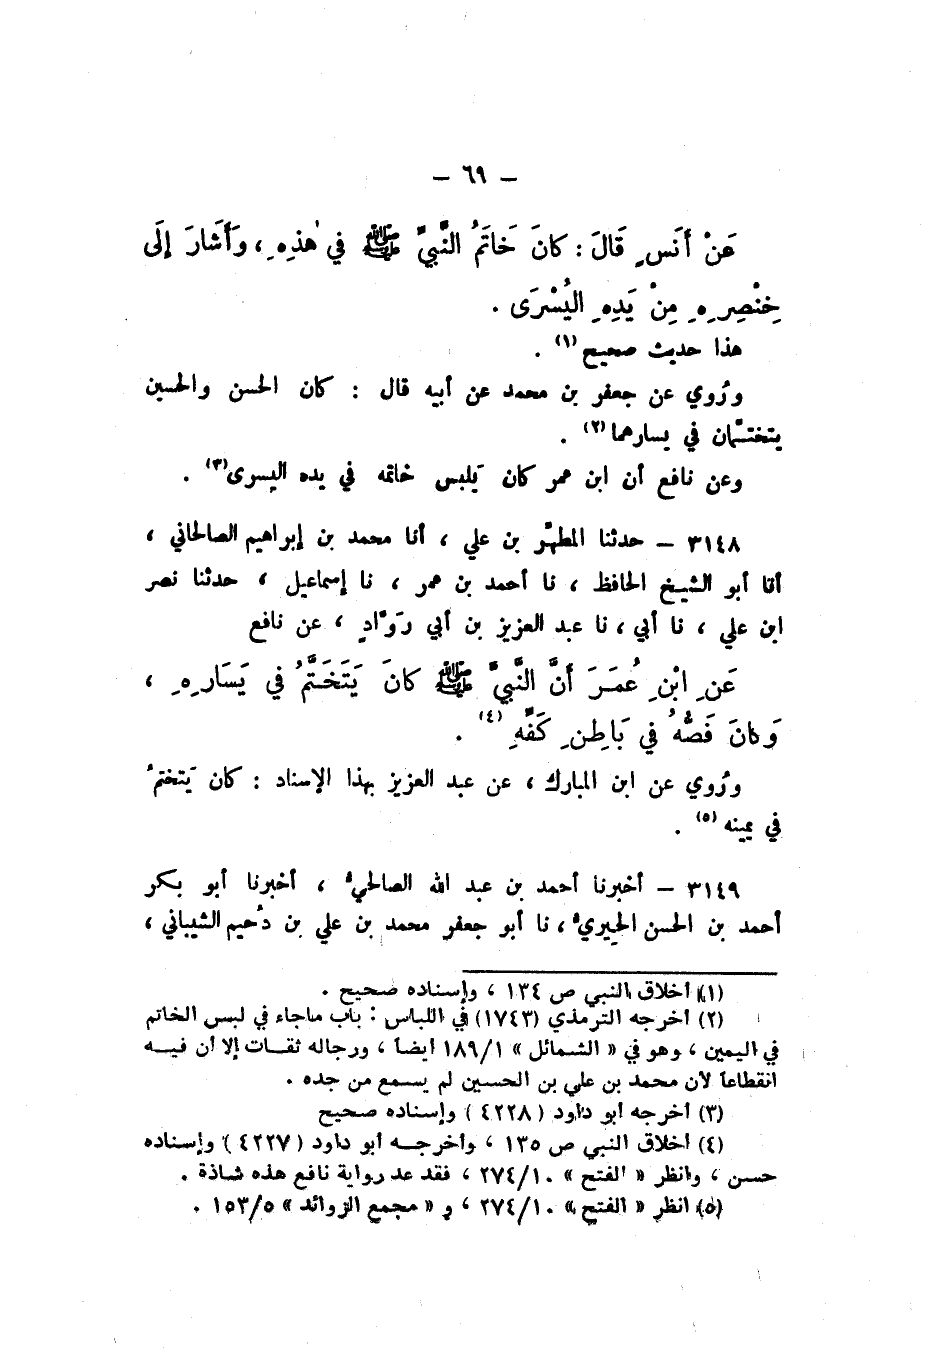 – ٦٩ –
عَنْ أَنَسٍ قَالَ : كَانَ خَاتَمُ النَّبِيِّ ﷺ فِي هٰذِهِ ، وَأَشَارَ إِلَى
خِنْصِرِهِ مِنْ يَدِهِ الْيُسْرَى .
هذا حديث صحيح (١) .
ورُوي عن جعفر بن محمد عن أبيه قال : كان الحسن والحسين
يتختَّمان في يسارهما (٢) .
وعن نافع أن ابن عمر كان يَلبس خاتمه في يده اليسرى (٣) .
٣١٤٨ – حدثنا المطهَّر بن علي ، أنا محمد بن إبراهيم الصالحاني ،
أنا أبو الشيخ الحافظ ، نا أحمد بن عمر ، نا إسماعيل ، حدثنا نصر
ابن علي ، نا أبي ، نا عبد العزيز بن أبي رَوَّادٍ ، عن نافع
عَنِ ابْنِ عُمَرَ أَنَّ النَّبِيَّ ﷺ كَانَ يَتَخَتَّمُ فِي يَسَارِهِ ،
وَكَانَ فَصُّهُ فِي بَاطِنِ كَفِّهِ (٤) .
ورُوي عن ابن المبارك ، عن عبد العزيز بهذا الإسناد : كان يَتختمُ
في يمينه (٥) .
٣١٤٩ – أخبرنا أحمد بن عبد الله الصالحيُّ ، أخبرنا أبو بكر
أحمد بن الحسن الحِيريُّ ، نا أبو جعفر محمد بن علي بن دُحيم الشيباني ،
(١) أخلاق النبي ص ١٣٤ ، وإسناده صحيح .
(٢) أخرجه الترمذي (١٧٤٣) في اللباس : باب ماجاء في لبس الخاتم
في اليمين ، وهو في « الشمائل » ١٨٩/١ أيضاً ، ورجاله ثقات إلا أن فيه
انقطاعاً لأن محمد بن علي بن الحسين لم يسمع من جده .
(٣) أخرجه أبو داود ( ٤٢٢٨ ) وإسناده صحيح
(٤) أخلاق النبي ص ١٣٥ ، وأخرجه أبو داود ( ٤٢٢٧ ) وإسناده
حسن ، وانظر « الفتح » ٢٧٤/١٠ ، فقد عد رواية نافع هذه شاذة .
(٥) انظر « الفتح » ٢٧٤/١٠ ، و « مجمع الزوائد » ١٥٣/٥ .